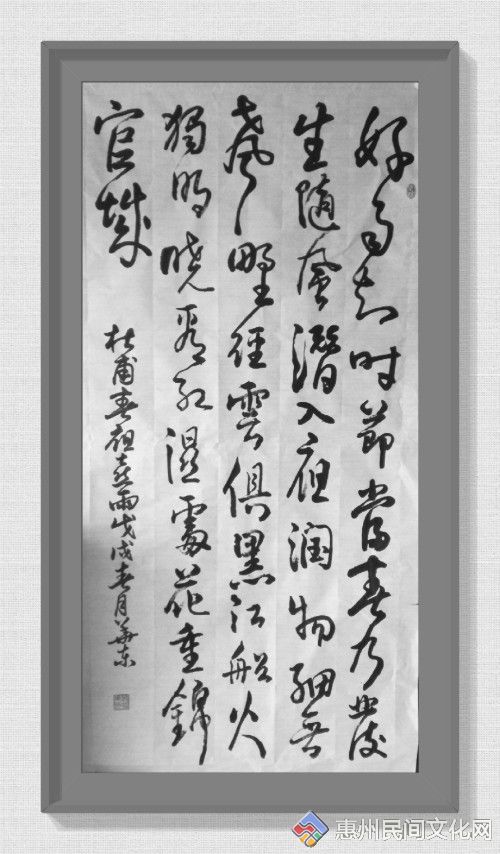 好雨知时節當春乃發
生隨風潛入夜润物細無
聲野徑雲俱黑江船火
獨明曉看红濕處花重錦
官城
杜甫春夜喜雨戊戌春月華东
惠州民间文化网